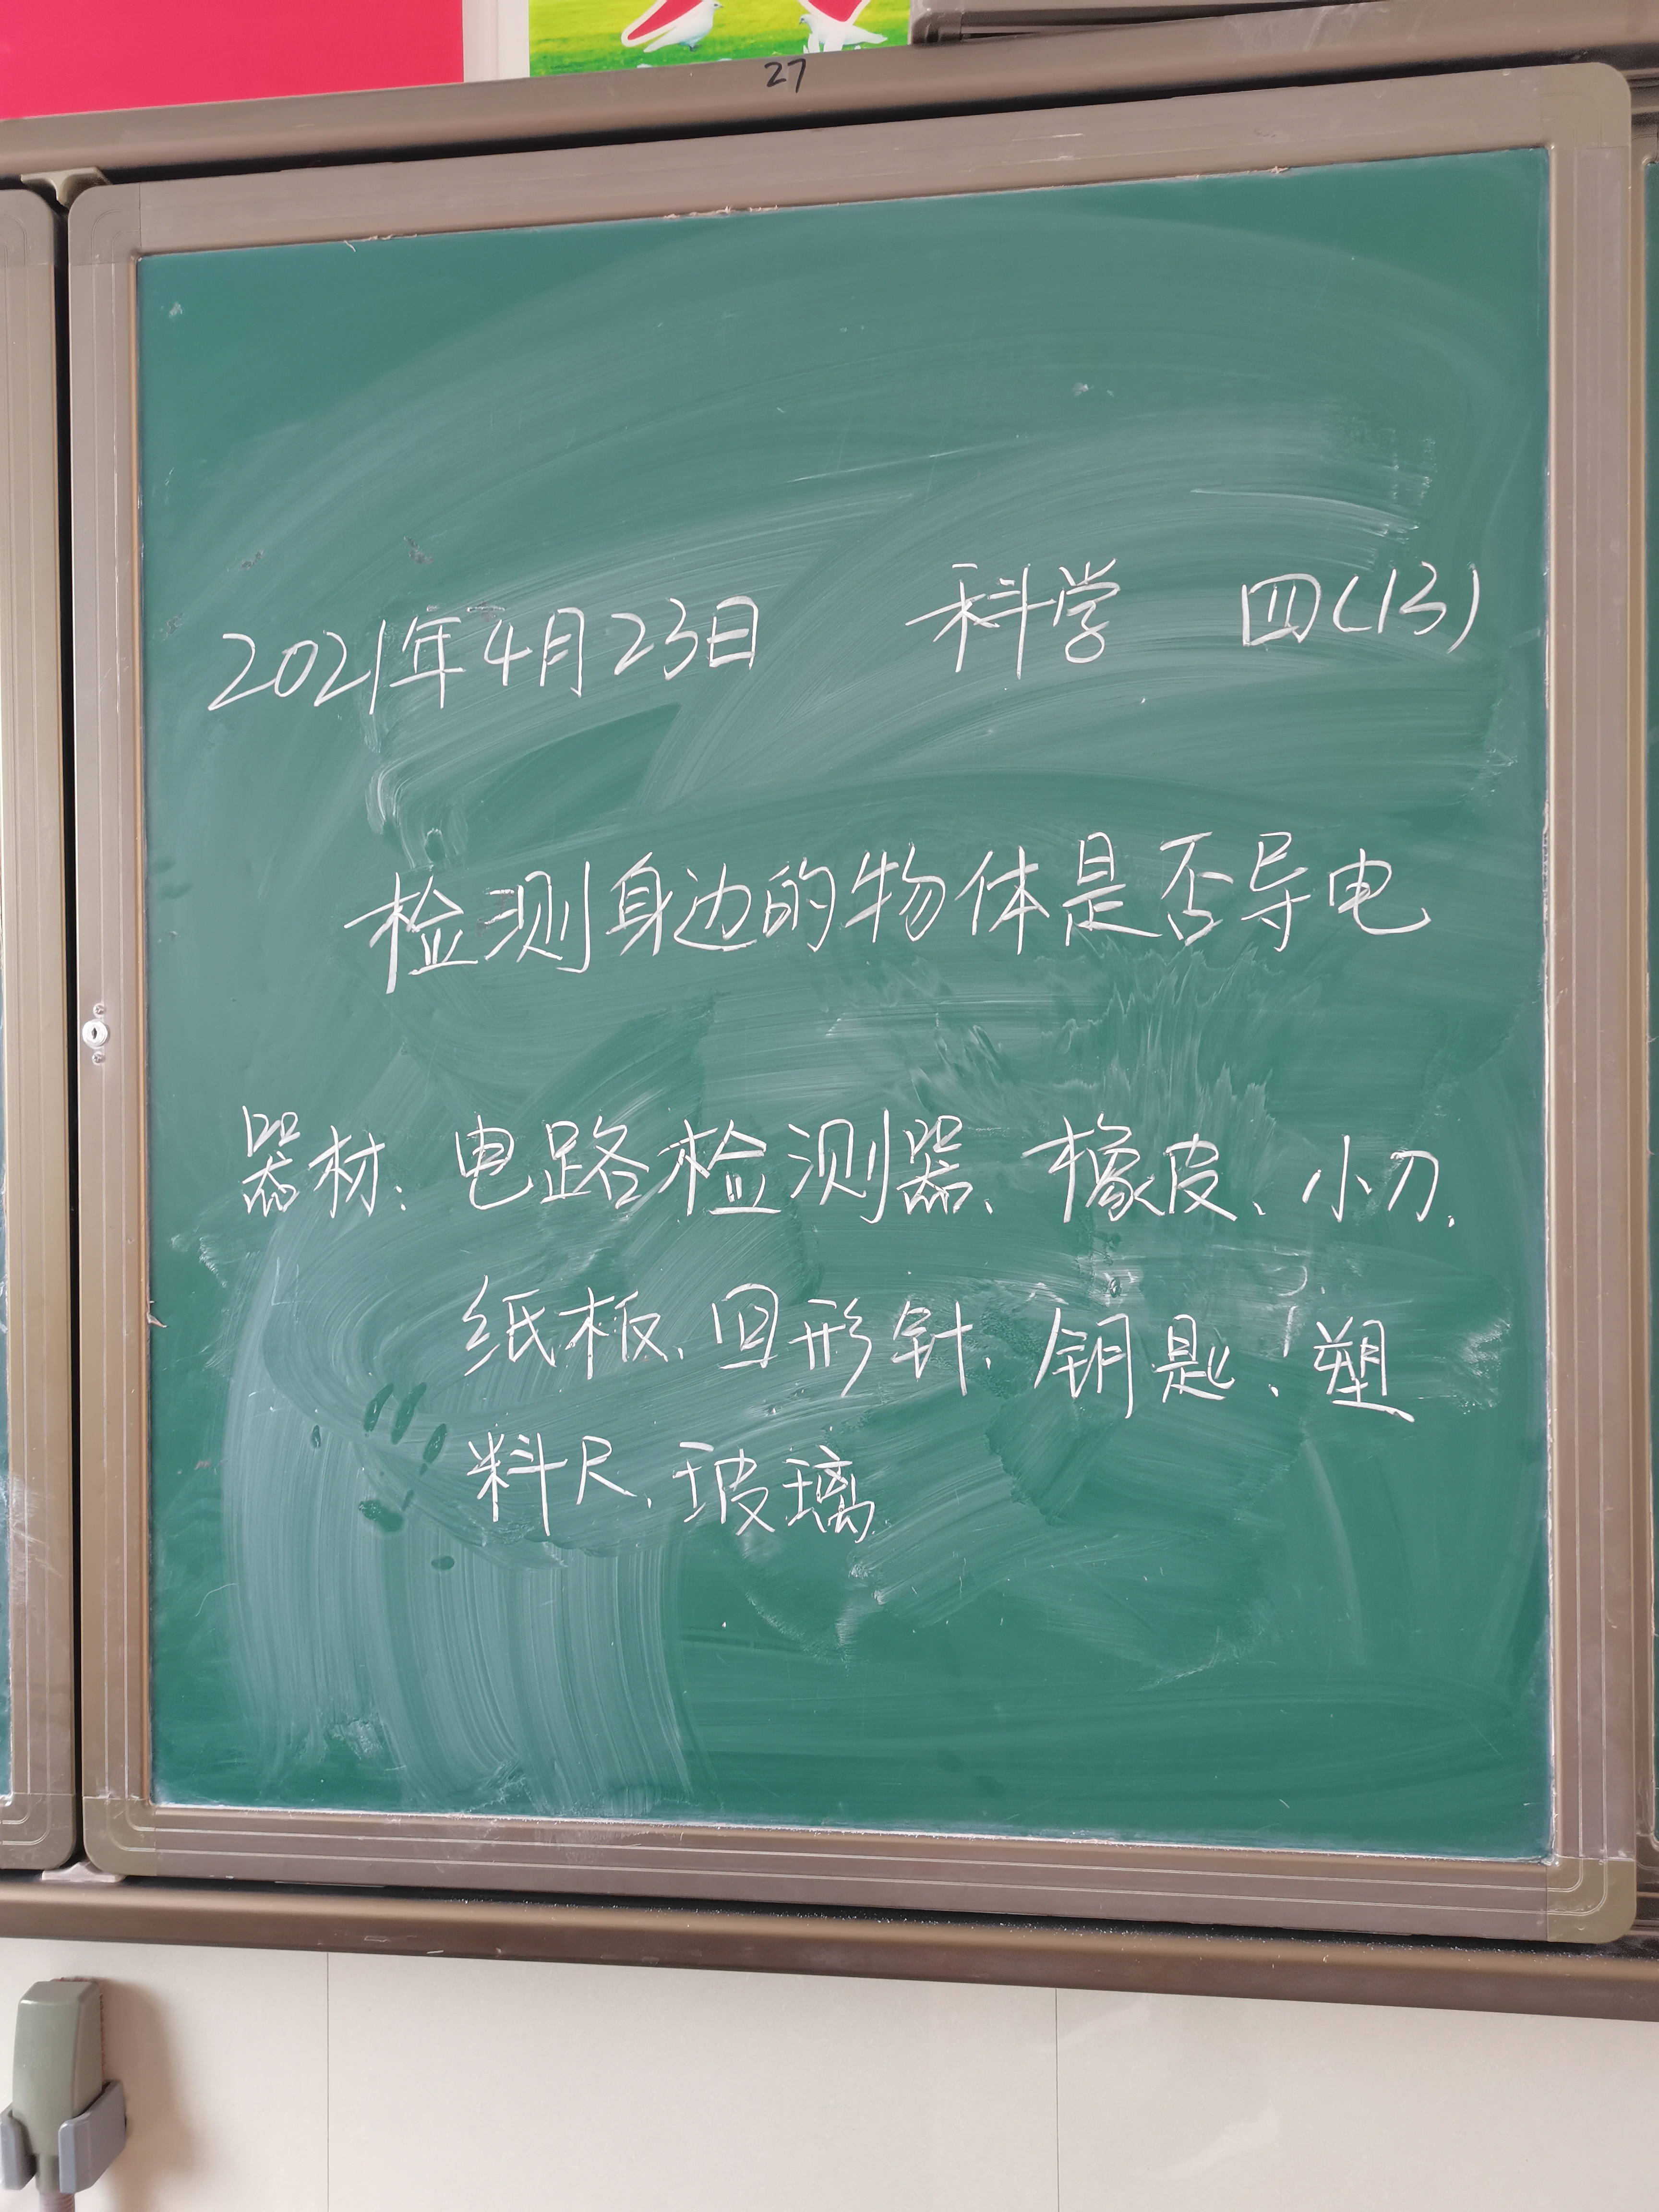 27
2021年4月23日 科学 四(13)
检测身边的物体是否导电
器材:电路检测器、橡皮、小刀、
纸板、回形针、钥匙、塑
料尺、玻璃